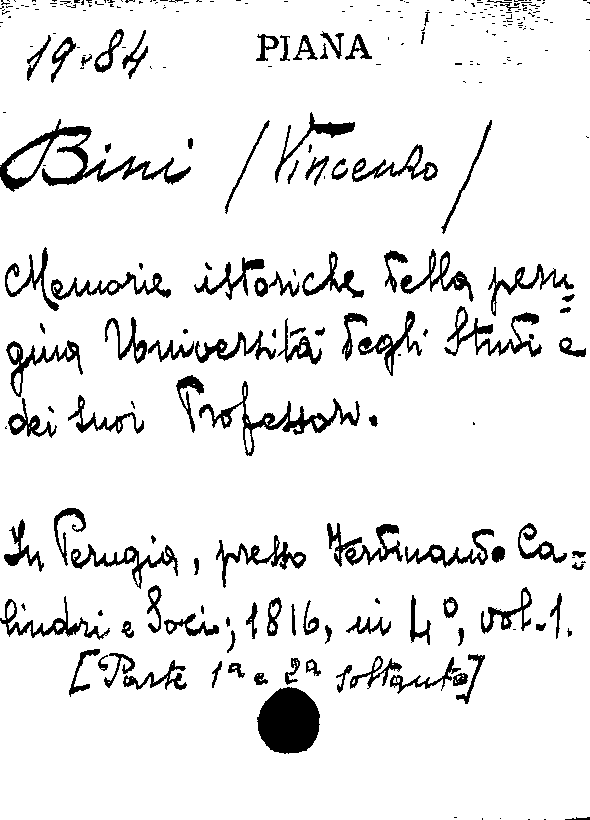 19.84 PIANA
Bini (Vincenzo)
Memorie istoriche della peru=
gina Università degli Studi e
dei suoi Professori.
In Perugia, presso Ferdinando Ca=
lindri e Soci; 1816, in 4º, vol. 1.
[Parte 1ª e 2ª soltanto]